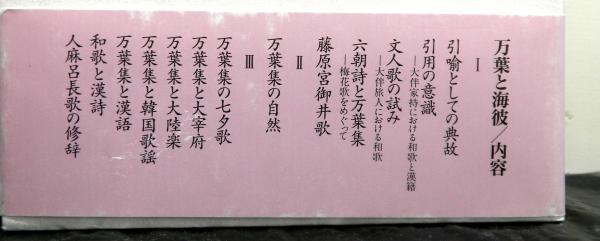 万葉と海彼／内容
Ⅰ
引喩としての典故
引用の意識
―大伴家持における和歌と漢籍
文人歌の試み
―大伴旅人における和歌
六朝詩と万葉集
―梅花歌をめぐって
藤原宮御井歌
Ⅱ
万葉集の自然
Ⅲ
万葉集の七夕歌
万葉集と大宰府
万葉集と大陸楽
万葉集と韓国歌謡
万葉集と漢語
和歌と漢詩
人麻呂長歌の修辞